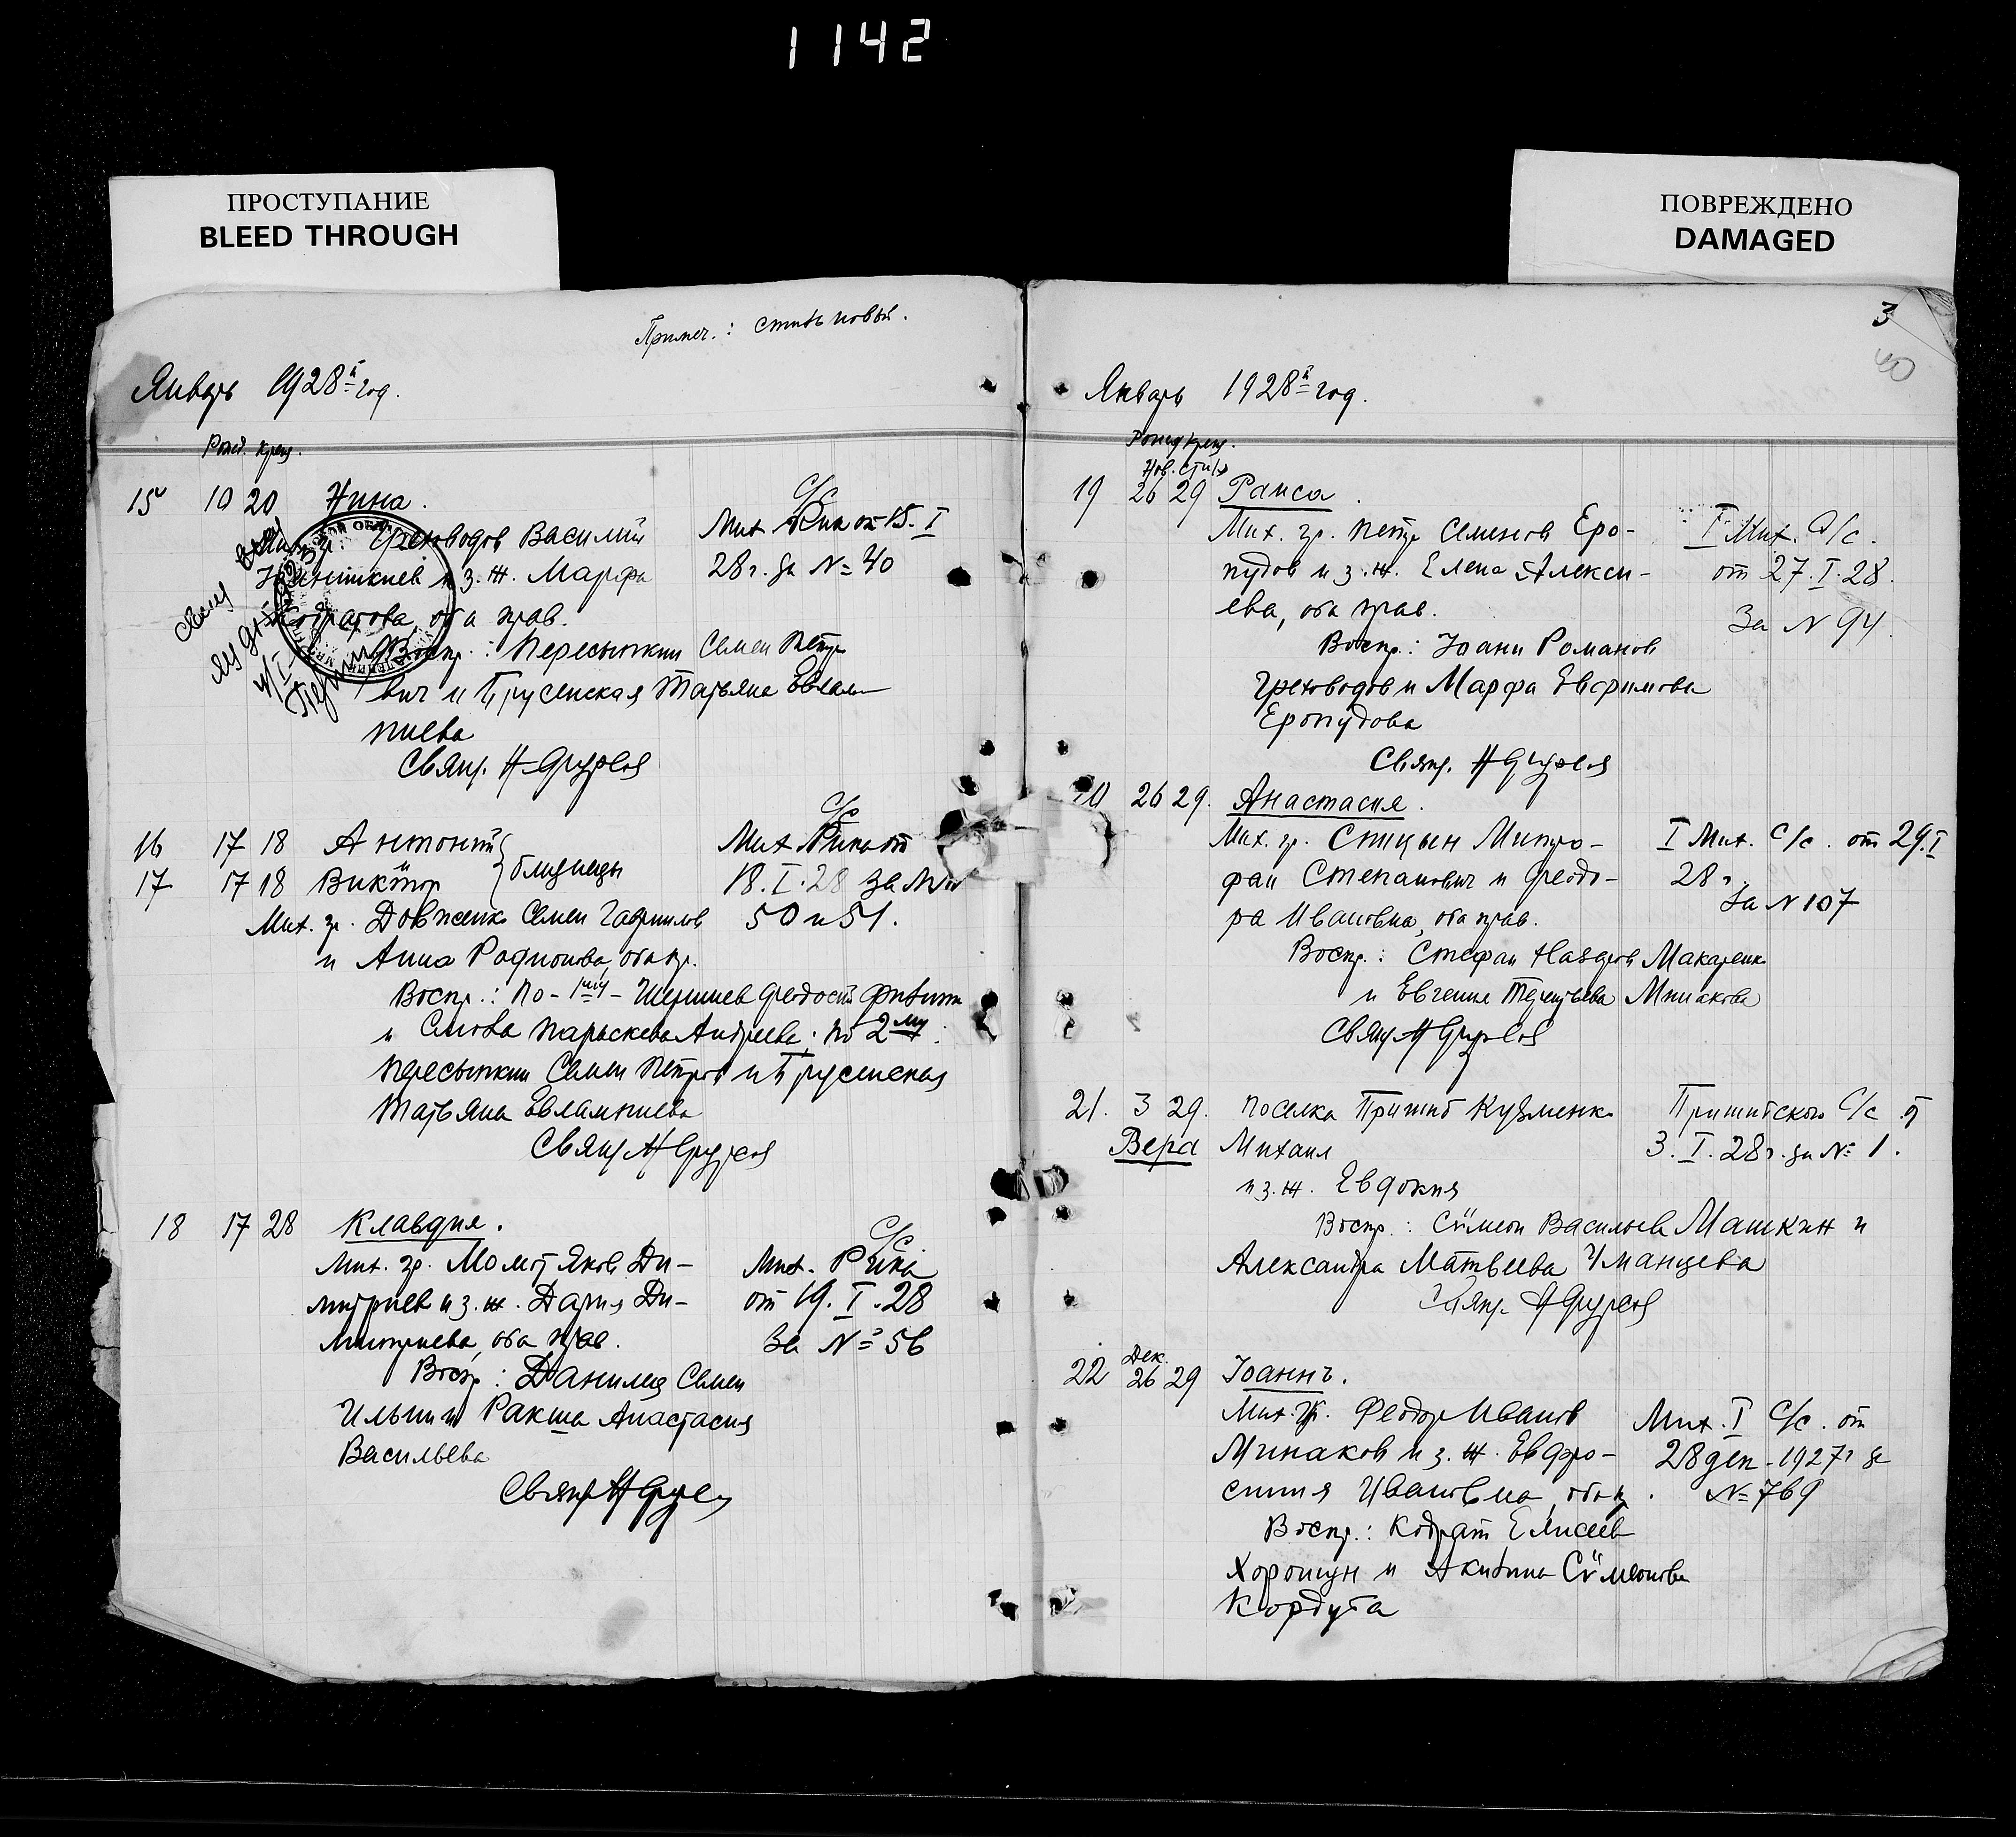 1142
ПРОСТУПАНИЕ
BLEED THROUGH
ПОВРЕЖДЕНО
DAMAGED
Примеч.: стиль новый.
Январь 1928й год.
Рожд. крещ.
15 10 20 Нина.
Греховодов Василий
и з. ж. Марфа
оба прав.
Воспр.: Пересыпкин Семен Петро
вич и Трусенская Татьяна Евлам-
пиева
Свящ.
С/с
Мих. от 15. I
28 г. за № 40
16 17 18 Антоний
17 17 18 Виктор } близнецы
Мих. гр. Довженко Семен Гаврилов
и Анна Родионова, оба пр.
Воспр.: по-1му-
и Параскева Андреева; по 2му:
Пересыпкин Семен Петров и Трусенская
Татьяна Евлампиева
Свящ.
С/с
Мих. Рика от
18. I. 28 за №№
50 и 51.
18 17 28 Клавдия.
Мих. гр. Момот Яков Ди-
митриев и з. ж. Дария Ди-
митриева, оба прав.
Воспр.: Данилец Семен
Ильин и Ракша Анастасия
Васильева
Свящ.
С/с
Мих. Рика
от 19. I. 28
за № 56
3
40
Январь 1928й год.
Рожд крещ.
Нов. стиль
19 26 29 Раиса.
Мих. гр. Петр Семенов Еро-
пудов и з. ж. Елена Алекси-
ева, оба прав.
Воспр.: Иоанн Романов
Греховодов и Марфа Евфимова
Еропудова
Свящ.
I Мих. С/с.
от 27. I. 28.
За № 94.
26 29. Анастасия.
Мих. гр. Спицын Митро-
фан Степанович и Феодо-
ра Ивановна, оба прав.
Воспр.: Стефан Назаров Макаренко
и Евгения Терентьева Минакова
Свящ
I Мих. С/с. от 29. I
28 г.
За № 107
21. 3 29. Поселка Пришиб Кузменко
Вера Михаил
и з. ж. Евдокия
Воспр.: Сѵмеон Васильев Машкин и
Александра Матвеева Уманцева
Свящ.
Пришибского С/с от
3. I. 28 г. за № 1.
Дек.
22 26 29 Iоаннъ.
Мих. гр. Феодор Иванов
Минаков и з. ж. Евфро-
синия Ивановна, оба пр.
Воспр.: Кодрат Елисеев
Хорошун и Акилина Сѵмеонова
Кордута
Мих. I С/с. от
28 дек. 1927 г за
№ 769